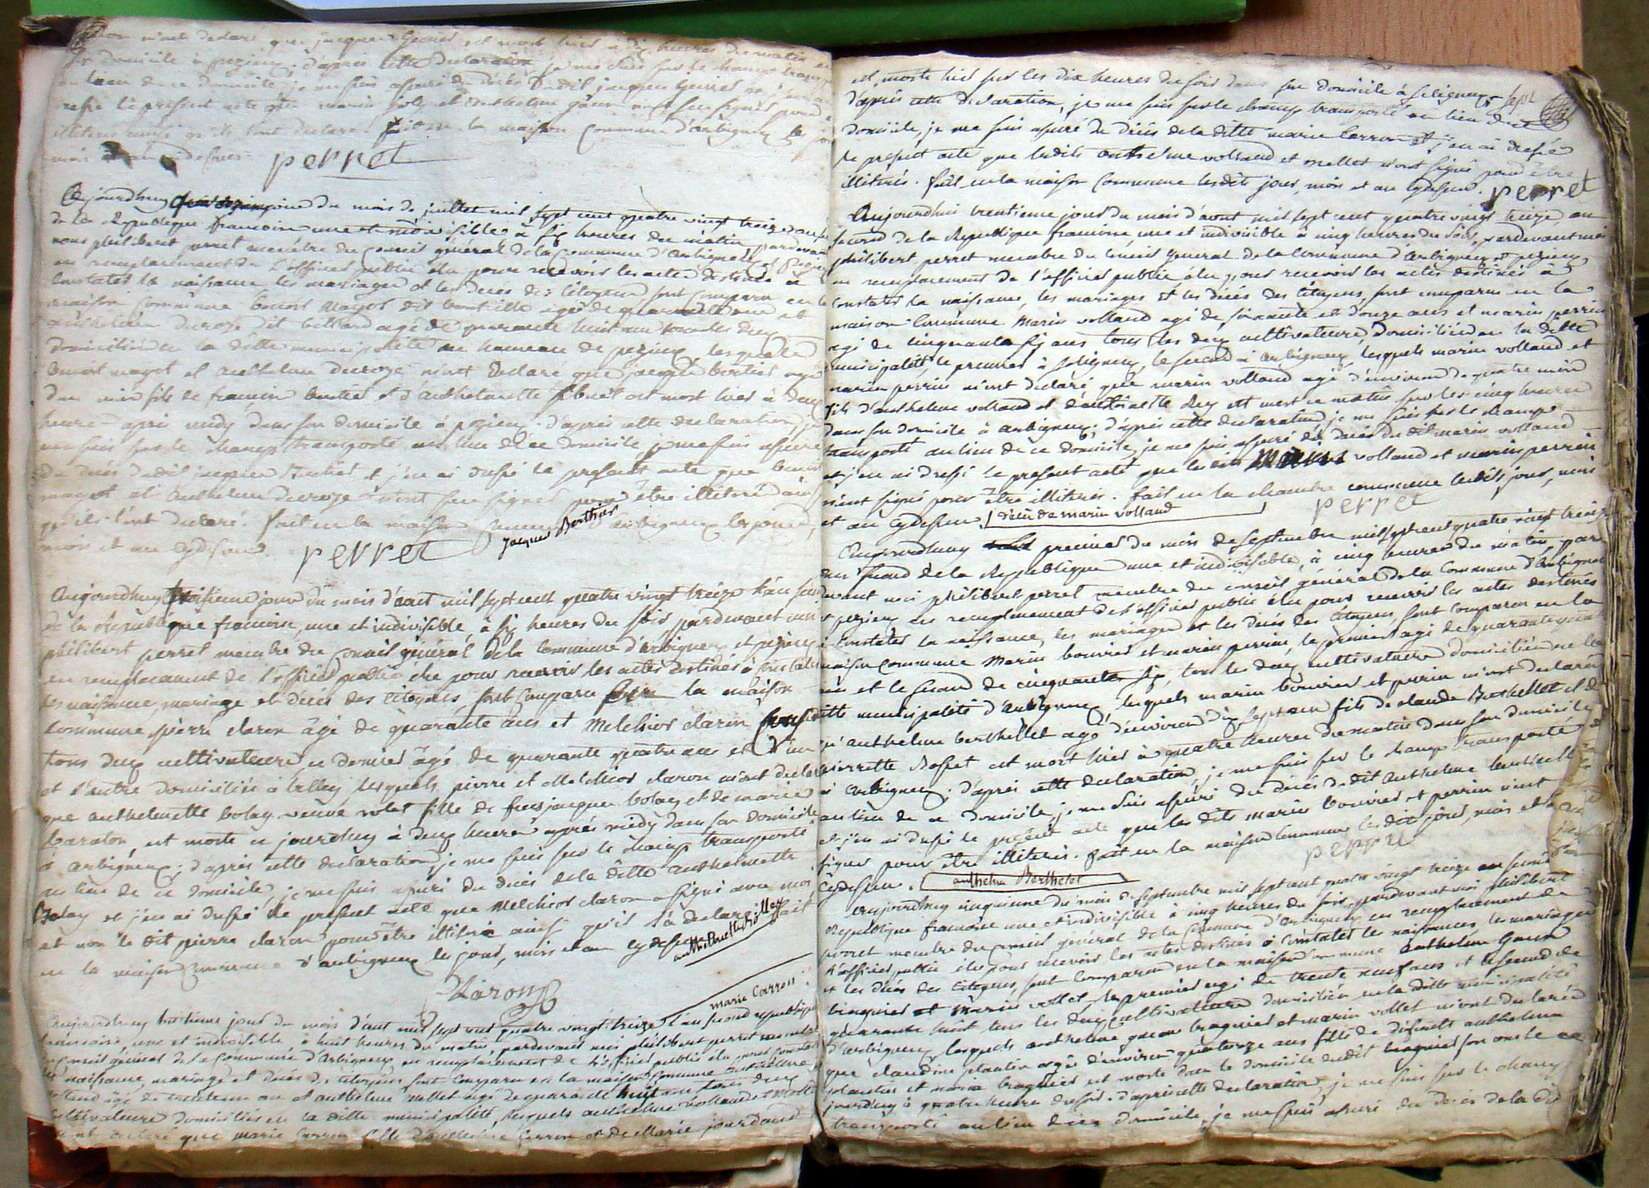 nous a declaré que jacques est mort hier à dix heures du matin
domicile à pezieux d'après cette declaration je me suis sur le champ
au lieu de ce domicile je me suis assuré du décès du dit jacques
le présent acte
illitéré ainsi qu'ils l'ont declaré. fait en la maison commune d'arbignieu le
mois
perret
Aujourdhuy du mois de juillet mil sept cent quatre vingt treize
de la Republique francoise une et indivisible à six heures du matin, pardevant
nous philibert perret membre du conseil général de la commune d'arbignieu et
en remplacement de l'officier public élu pour recevoir les actes destinés à
constater la naissance, les mariages et les décès des citoyens sont comparu en la
maison commune benoit mayot dit agé de quarante ans et
anthelme ducroze dit billiard agé de quarante huit ans tous les deux
domiciliés en la ditte municipalité au hameau de pezieux lesquels
benoit mayot et anthelme ducroze m'ont declaré que jacques bertier agé
d'un mois fils de francois bertier et d'anthelmette est mort hier à deux
heures après midy dans son domicile à pezieu. d'après cette declaration, je
me suis sur le champ transporté au lieu de ce domicile, je me suis assuré
du décès du dit jacques bertier et j'en ai dressé le présent acte que benoit
mayot et anthelme ducroze n'ont su signer pour être illitéré ainsi
qu'ils l'ont declaré fait en la maison commune d'arbignieu les jour,
mois et an cydessus. perret jacques Berthier
Aujourdhuy troisieme jour du mois d'aout mil sept cent quatre vingt treize l'an second
de la republique francoise, une et indivisible, à six heures du soir pardevant moi
philibert perret membre du conseil général de la commune d'arbignieu et pezieu
en remplacement de l'officier public élu pour recevoir les actes destinés à constater
les naissance, mariage et décès des citoyens sont comparu en la maison
commune, pierre claron âgé de quarante ans et Melchior claron
tous deux cultivateurs ce dernier âgé de quarante quatre ans et l'un
et l'autre domiciliés à belley lesquels pierre et Melchior claron m'ont declaré
que anthelmette bolley veuve volet fille de jacques bolley et de marie
claron, est morte ce jourdhuy à deux heures après midy dans son domicile
à arbignieu; d'après cette declaration je me suis sur le champ transporté
au lieu de ce domicile, je me suis assuré du décès de la ditte anthelmette
Bolley et j'en ai dressé le présent acte que Melchior claron a signé avec moi
et non le dit pierre claron pour être illitéré ainsi qu'il l'a declaré fait
en la maison commune d'arbignieu les jour, mois et an cydessus anthelmette billey
Claron
marie Carron
Aujourdhuy huitieme jour du mois d'aout mil sept cent quatre vingt treize l'an second republique
francoise, une et indivisible, à huit heures du matin pardevant moi philibert perret membre
du conseil général de la commune d'Arbignieu en remplacement de l'officier public élu pour constater
les naissance, mariage et décès des citoyens sont comparu en la maison commune anthelme
volland agé de trente un ans et anthelme vollet agé de quarante huit ans tous deux
cultivateurs domiciliés en la ditte municipalité, lesquels anthelme volland et vollet
m'ont declaré que marie carron fille d'anthelme carron et de Marie jourdand
est morte hier sur les dix heures du soir dans son domicile à Slignieux
d'après cette declaration, je me suis sur le champ transporté au lieu de ce
domicile, je me suis assuré du décès de la ditte marie Carron et j'en ai dressé
le présent acte que lesdits anthelme volland et vollet n'ont signé pour être
illitérés. fait en la maison commune lesdits jour, mois et an cydessus. perret
Aujourdhui trentieme jour du mois d'aout mil sept cent quatre vingt treize an
second de la Republique francoise une et indivisible à cinq heures du soir, pardevant moi
philibert perret membre du conseil general de la commune d'arbignieu et pezieu
en remplacement de l'officier public élu pour recevoir les actes destinés à
constater la naissance, les mariages et les décès des citoyens, sont comparus en la
maison commune Marin volland agé de soixante et douze ans et marin perrin
agé de cinquante six ans tous les deux cultivateurs, domiciliés en la ditte
municipalité le premier à slignieu, le second à arbignieu, lesquels marin volland et
marin perrin m'ont déclaré que marin volland agé d'environ de quatre mois
fils d'anthelme volland et d'anthelmette Rey est mort ce matin sur les cinq heures
dans son domicile à arbignieu. d'après cette declaration je me suis sur le champ
transporté au lieu de ce domicile, je me suis assuré du décès du dit marin volland
et j'en ai dressé le present acte que les dits Marin volland et marin perrin
n'ont signé pour être illitérés. fait en la chambre commune lesdits jour, mois
et an cydessus décès de marin volland perret
Aujourdhuy premier du mois de septembre mil sept cent quatre vingt treize
an second de la Republique une et indivisible, à cinq heures du matin par
devant moi philibert perret membre du conseil général de la commune d'Arbignieu
et pezieu en remplacement de l'officier public élu pour recevoir les actes destinés
à constater la naissance, les mariages et les décès des citoyens, sont comparu en la
maison commune Marin bouvier et marin perrin, le premier agé de quarante
ans et le second de cinquante six, tous les deux cultivateurs domiciliés en la
ditte municipalité d'Arbignieu lesquels marin bouvier et perrin m'ont declaré
qu'anthelme berthellet agé d'environ dix sept ans fils de claude Berthellet et de
pierrette Rosset est mort hier à quatre heures du matin dans son domicile
à arbignieu. d'après cette declaration, je me suis sur le champ transporté
au lieu de ce domicile, je me suis assuré du décès du dit anthelme berthellet
et j'en ai dressé le présent acte que les dits marin bouvier et perrin n'ont
signé pour être illitérés. fait en la maison commune les dits jour, mois et an
cydessus. anthelme Berthelet perret
Aujourdhuy cinquieme du mois de septembre mil sept cent quatre vingt treize an second
Republique francoise une et indivisible à cinq heures du soir, pardevant moi philibert
perret membre du conseil général de la commune d'Arbignieu en remplacement de
l'officier public élu pour recevoir les actes destinés à constater les naissances, les mariages
et les décès des citoyens, sont comparu en la maison commune anthelme
traquier et Marin vollet, le premier agé de trente neuf ans et le second de
quarante huit tous les deux cultivateurs domiciliés en la ditte municipalité
d'Arbignieu, lesquels anthelme traquier et marin vollet m'ont declaré
que claudine plantin agée d'environ quatorze ans fille de défunts anthelme
plantin et marie traquier est morte dans le domicile du dit traquier son oncle ce
jourdhuy à quatre heures du soir. d'après cette declaration, je me suis sur le champ
transporté au lieu de ce domicile, je me suis assuré du décès de la dite